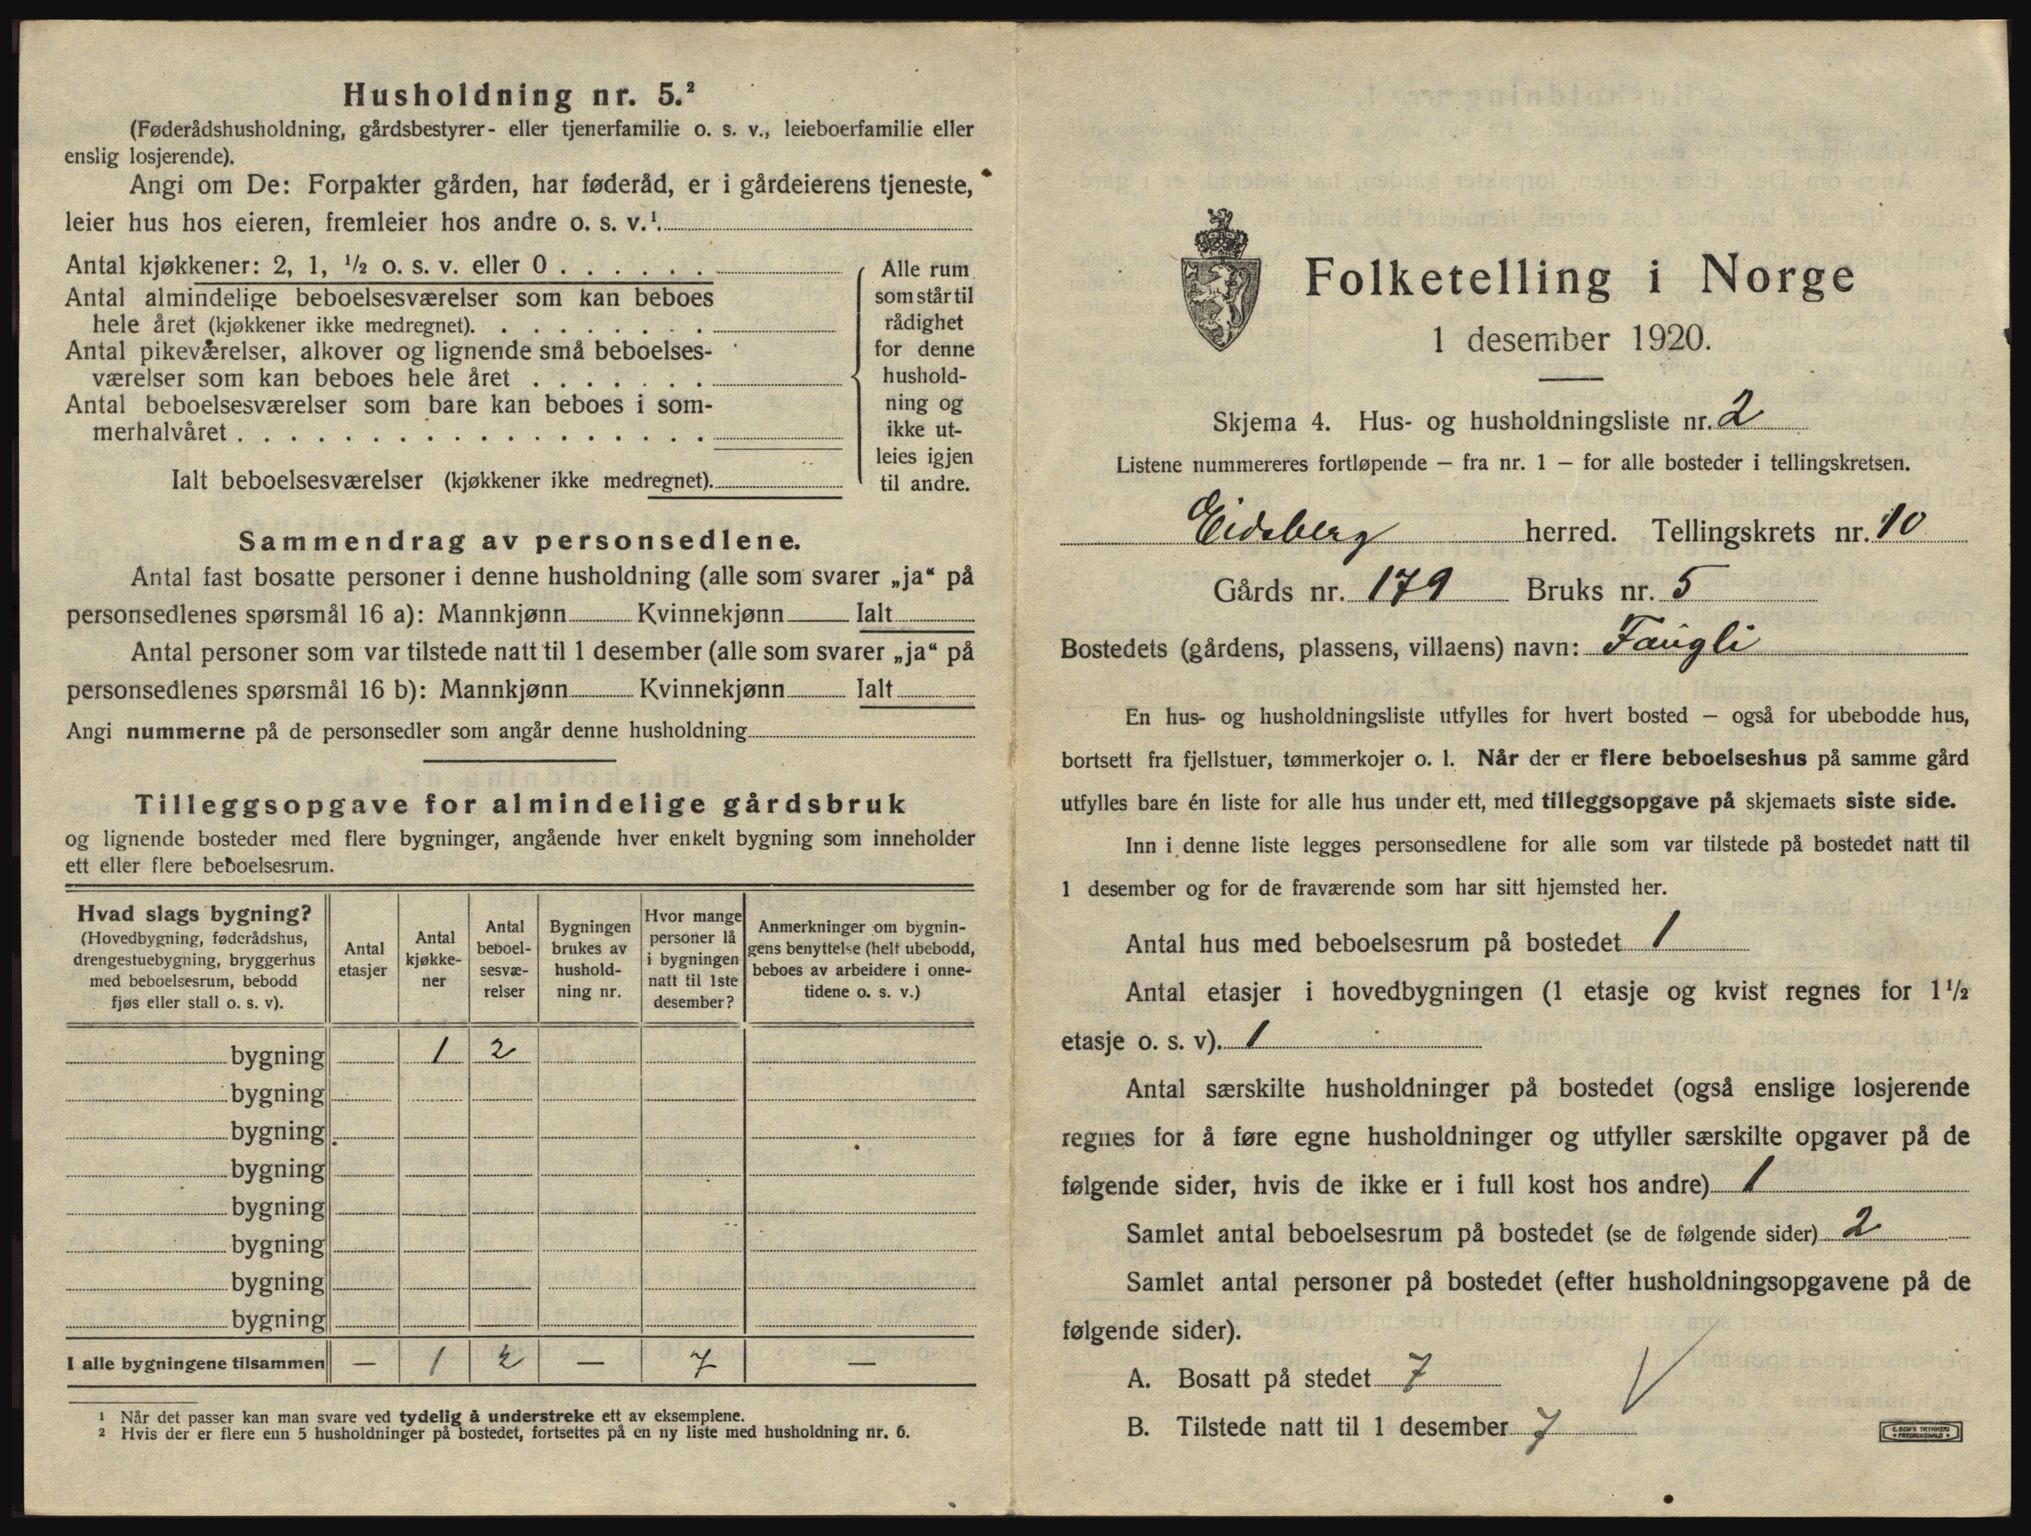 Husholdning nr. 5.²
(Føderådshusholdning, gårdsbestyrer- eller tjenerfamilie o. s. v., leieboerfamilie eller
enslig losjerende).
Angi om De: Forpakter gården, har føderåd, er i gårdeierens tjeneste,
leier hus hos eieren, fremleier hos andre o. s. v.¹.
Antal kjøkkener: 2, 1, ½ o. s. v. eller 0 . . . . . .
Antal almindelige beboelsesværelser som kan beboes
hele året (kjøkkener ikke medregnet). . . . . . . . .
Antal pikeværelser, alkover og lignende små beboelses-
værelser som kan beboes hele året . . . . . . .
Antal beboelsesværelser som bare kan beboes i som-
merhalvåret . . . . . . . . . . . . . . . . . .
Ialt beboelsesværelser (kjøkkener ikke medregnet).
Alle rum
som står til
rådighet
for denne
hushold-
ning og
ikke ut-
leies igjen
til andre.
Sammendrag av personsedlene.
Antal fast bosatte personer i denne husholdning (alle som svarer „ja“ på
personsedlenes spørsmål 16 a): Mannkjønn Kvinnekjønn Ialt
Antal personer som var tilstede natt til 1 desember (alle som svarer „ja“ på
personsedlenes spørsmål 16 b): Mannkjønn Kvinnekjønn Ialt
Angi nummerne på de personsedler som angår denne husholdning
Tilleggsopgave for almindelige gårdsbruk
og lignende bosteder med flere bygninger, angående hver enkelt bygning som inneholder
ett eller flere beboelsesrum.
Hvad slags bygning?
(Hovedbygning, føderådshus,
drengestuebygning, bryggerhus
med beboelsesrum, bebodd
fjøs eller stall o. s. v).
Antal
etasjer
Antal
kjøkke-
ner
Antal
beboel-
sesvæ-
relser
Bygningen
brukes av
hushold-
ning nr.
Hvor mange
personer lå
i bygningen
natt til 1ste
desember?
Anmerkninger om bygnin-
gens benyttelse (helt ubebodd,
beboes av arbeidere i onne-
tidene o. s. v.)
bygning 1 2
bygning
bygning
bygning
bygning
bygning
bygning
bygning
I alle bygningene tilsammen — 1 2 — 7 —
¹ Når det passer kan man svare ved tydelig å understreke ett av eksemplene.
² Hvis der er flere enn 5 husholdninger på bostedet, fortsettes på en ny liste med husholdning nr. 6.
Folketelling i Norge
1 desember 1920.
Skjema 4. Hus- og husholdningsliste nr. 2
Listene nummereres fortløpende — fra nr. 1 — for alle bosteder i tellingskretsen.
Eidsberg herred. Tellingskrets nr. 10
Gårds nr. 179 Bruks nr. 5
Bostedets (gårdens, plassens, villaens) navn: Faugli
En hus- og husholdningsliste utfylles for hvert bosted — også for ubebodde hus,
bortsett fra fjellstuer, tømmerkojer o. l. Når der er flere beboelseshus på samme gård
utfylles bare én liste for alle hus under ett, med tilleggsopgave på skjemaets siste side.
Inn i denne liste legges personsedlene for alle som var tilstede på bostedet natt til
1 desember og for de fraværende som har sitt hjemsted her.
Antal hus med beboelsesrum på bostedet 1
Antal etasjer i hovedbygningen (1 etasje og kvist regnes for 1½
etasje o. s. v). 1
Antal særskilte husholdninger på bostedet (også enslige losjerende
regnes for å føre egne husholdninger og utfyller særskilte opgaver på de
følgende sider, hvis de ikke er i full kost hos andre) 1
Samlet antal beboelsesrum på bostedet (se de følgende sider) 2
Samlet antal personer på bostedet (efter husholdningsopgavene på de
følgende sider).
A. Bosatt på stedet 7
B. Tilstede natt til 1 desember 7